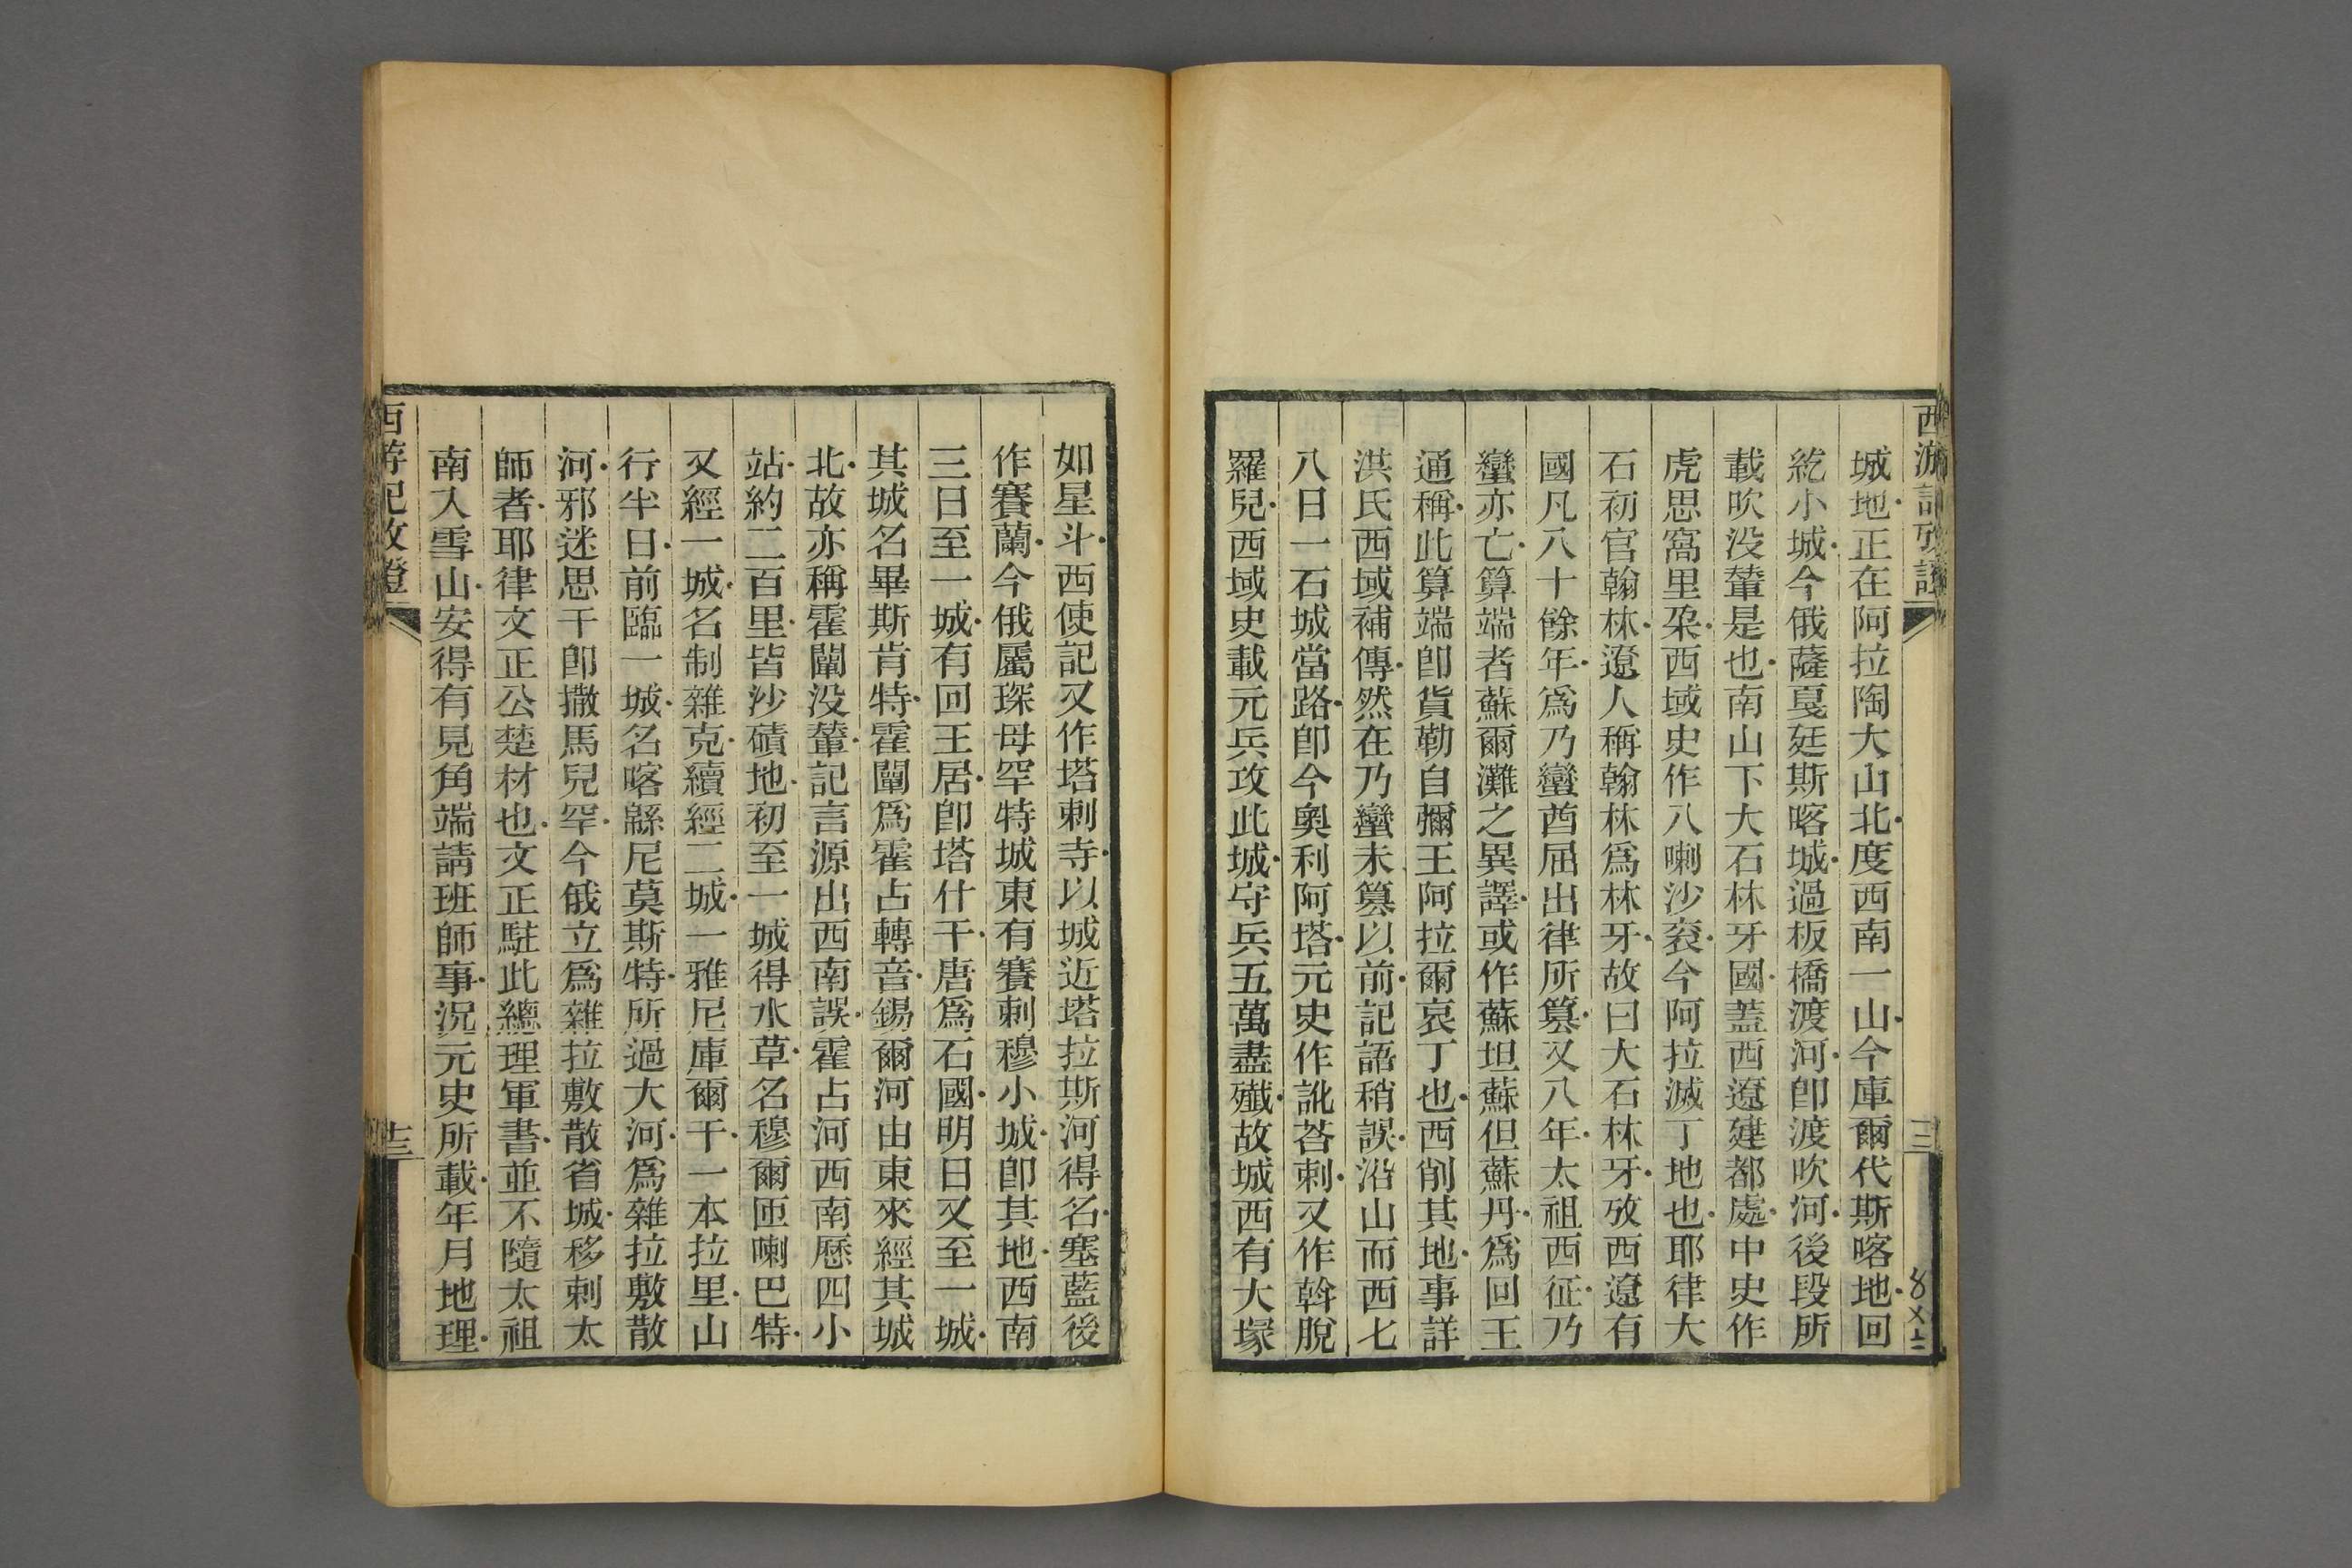 西游記攷證
三
城地正在阿拉陶大山北度西南一山今庫爾代斯喀地回
紇小城今俄薩戛廷斯喀城過板橋渡河卽渡吹河後段所
載吹没輦是也南山下大石林牙國蓋西遼建都處中史作
虎思窩里朶西域史作八喇沙袞今阿拉滅丁地也耶律大
石初官翰林遼人稱翰林爲林牙故曰大石林牙攷西遼有
國凡八十餘年爲乃蠻酋屈出律所簒又八年太祖西征乃
蠻亦亡算端者蘇爾灘之異譯或作蘇坦蘇但蘇丹爲回王
通稱此算端卽貨勒自彌王阿拉爾哀丁也西削其地事詳
洪氏西域補傳然在乃蠻未簒以前記語稍誤沿山而西七
八日一石城當路卽今奧利阿塔元史作訛荅剌又作斡脫
羅兒西域史載元兵攻此城守兵五萬盡殲故城西有大塚
如星斗西使記又作塔剌寺以城近塔拉斯河得名塞藍後
作賽蘭今俄屬琛母罕特城東有賽剌穆小城卽其地西南
三日至一城有回王居卽塔什干唐爲石國明日又至一城
其城名畢斯肯特霍闡爲霍占轉音錫爾河由東來經其城
北故亦稱霍闡没輦記言源出西南誤霍占河西南歷四小
站約二百里皆沙磧地初至一城得水草名穆爾匝喇巴特
又經一城名制雜克續經二城一雅尼庫爾干一本拉里山
行半日前臨一城名喀緜尼莫斯特所過大河爲雜拉敷散
河邪迷思干卽撒馬兒罕今俄立爲雜拉敷散省城移剌太
師者耶律文正公楚材也文正駐此總理軍書並不隨太祖
南入雪山安得有見角端請班師事況元史所載年月地理
西游記攷證
三